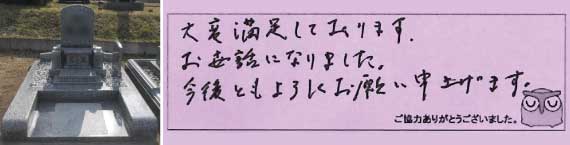 大変満足しております。
お世話になりました。
今後ともよろしくお願い申上げます。
ご協力ありがとうございました。